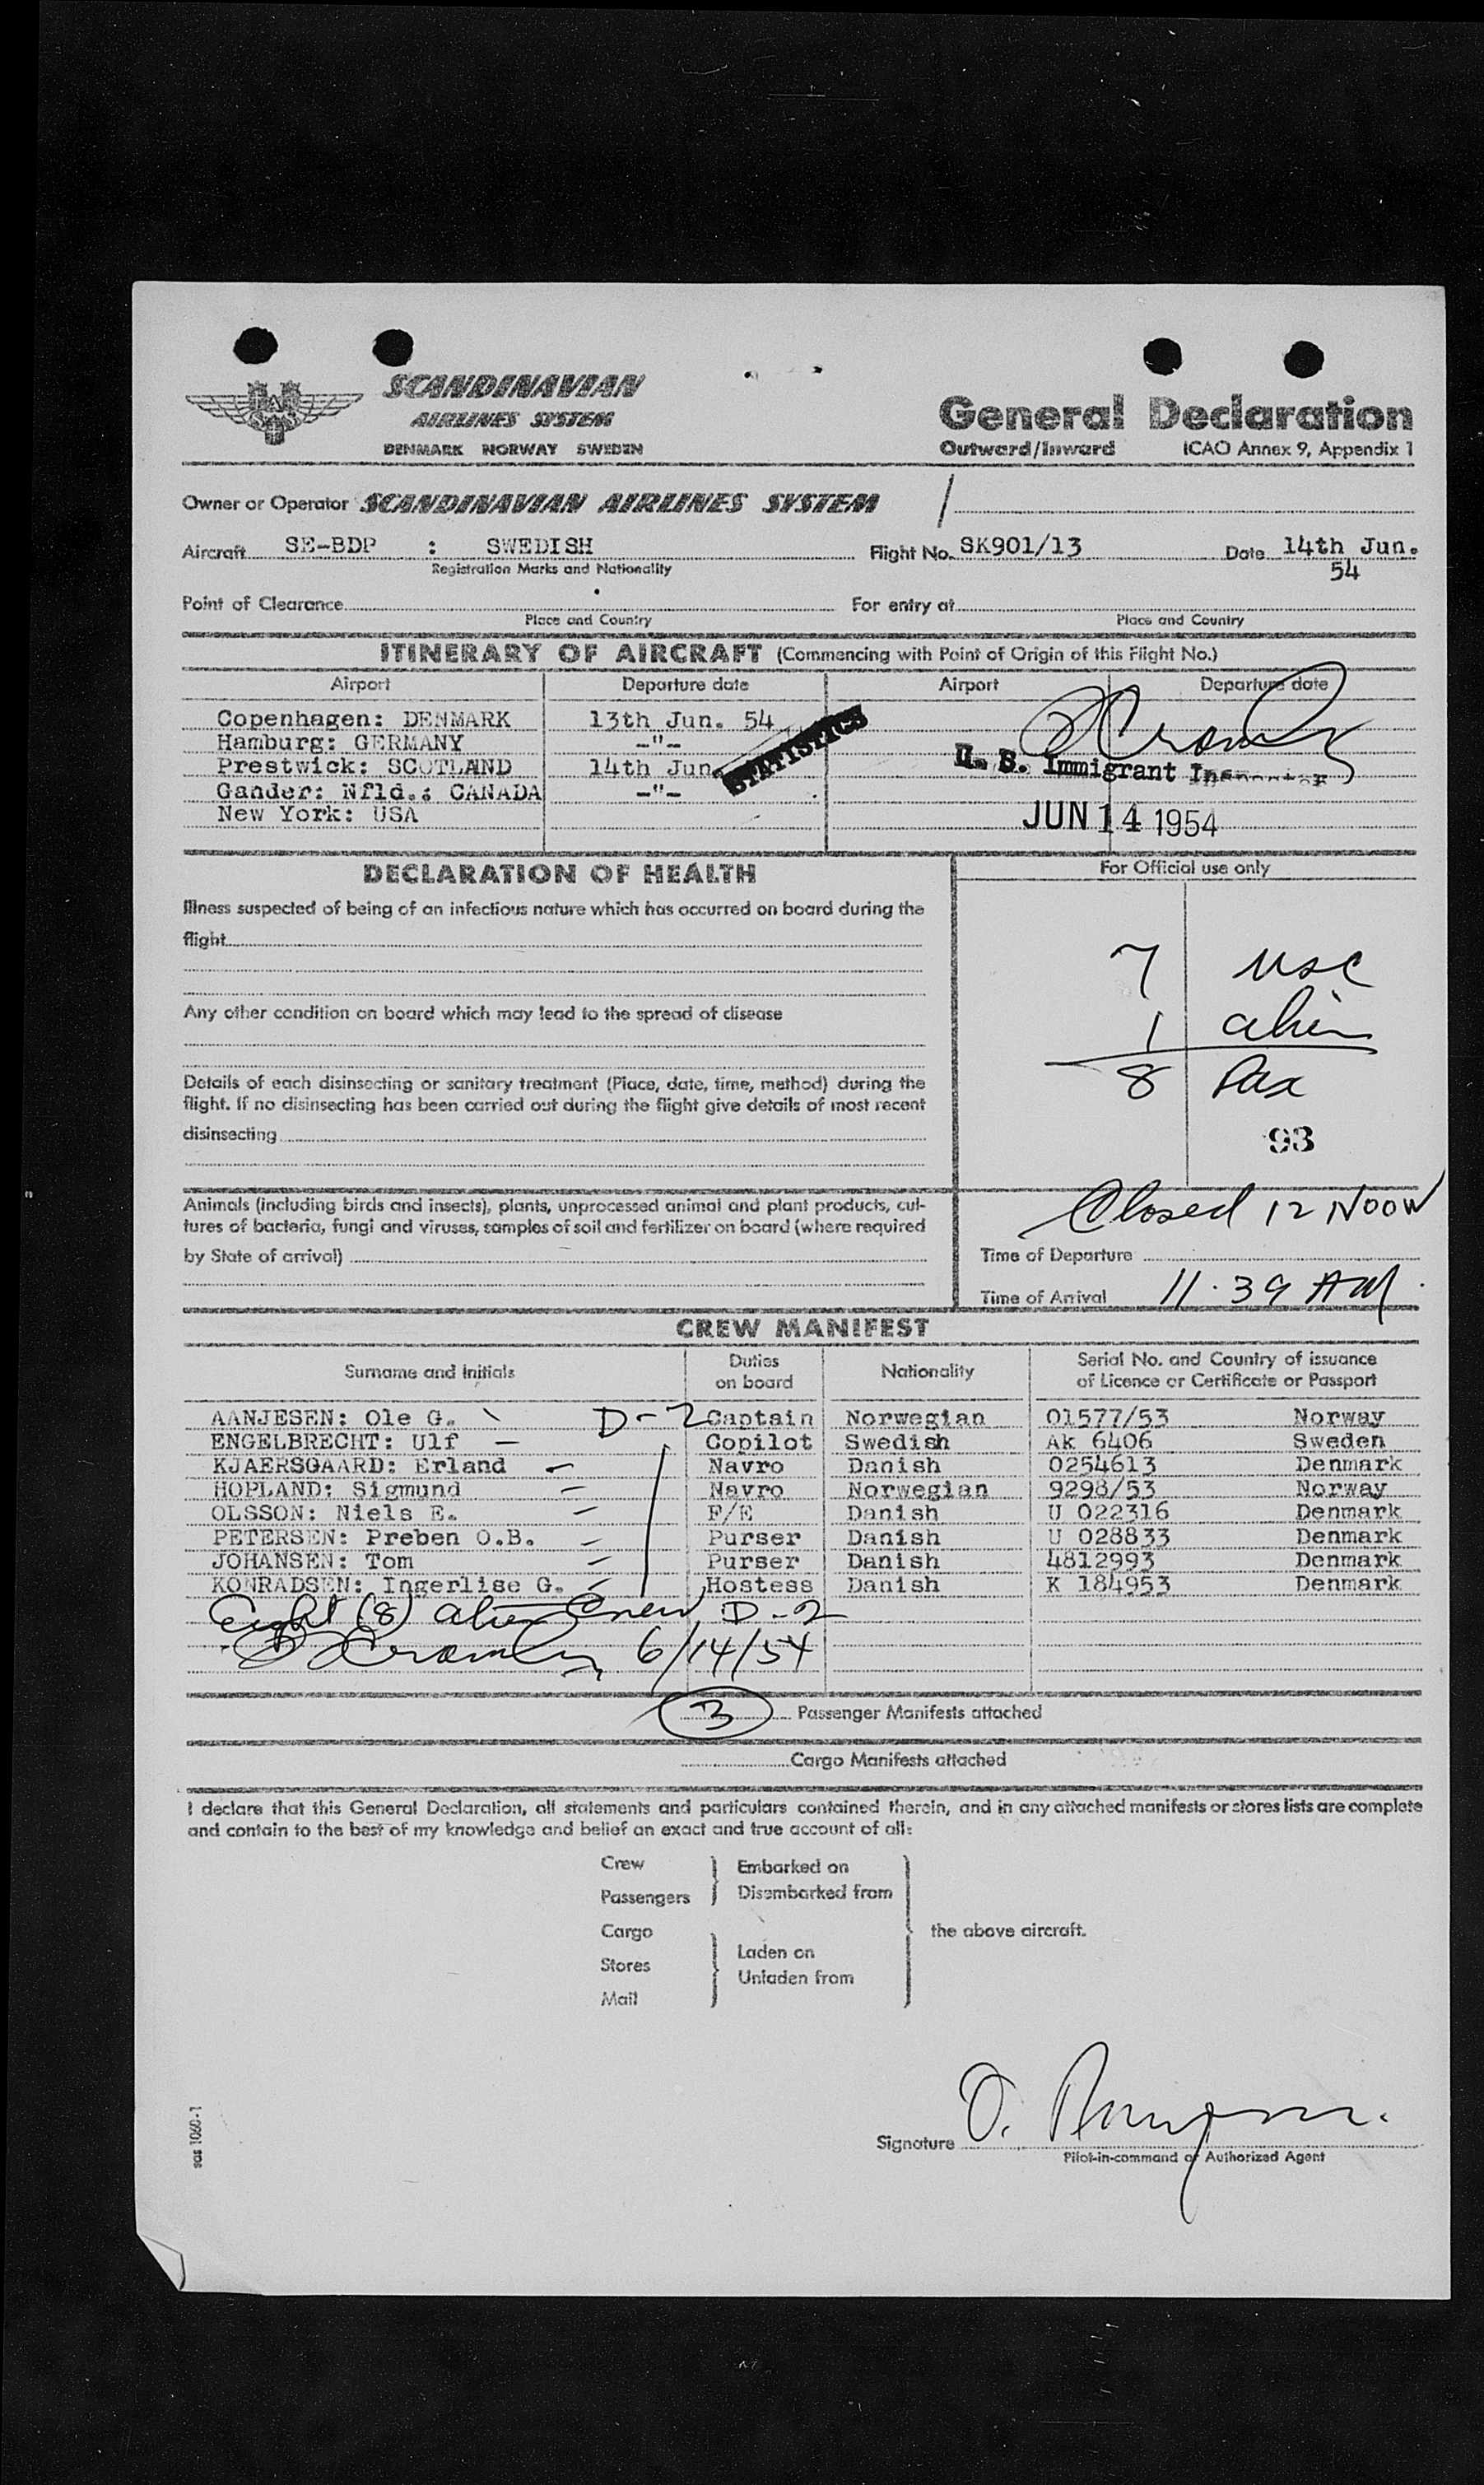 SCANDINAVIAN
AIRLINES SYSTEM
DENMARK NORWAY SWEDEN
General Declaration
Outward/Inward ICAO Annex 9, Appendix 1
Owner or Operator SCANDINAVIAN AIRLINES SYSTEM
Aircraft SE-BDP : SWEDISH Flight No. SK901/13 Date 14th Jun. 54
Registration Marks and Nationality
Point of Clearance For entry at
Place and Country Place and Country
ITINERARY OF AIRCRAFT (Commencing with Point of Origin of this Flight No.)
Airport Departure date Airport Departure date
Copenhagen: DENMARK 13th Jun. 54
Hamburg: GERMANY -"-
Prestwick: SCOTLAND 14th Jun.
Gander: Nfld.: CANADA -"-
New York: USA
STATISTICS
U. S. Immigrant Inspector
JUN 14 1954
DECLARATION OF HEALTH
For Official use only
Illness suspected of being of an infectious nature which has occurred on board during the
flight
Any other condition on board which may lead to the spread of disease
Details of each disinsecting or sanitary treatment (Place, date, time, method) during the
flight. If no disinsecting has been carried out during the flight give details of most recent
disinsecting
7 usc
1 alien
8 Pax
93
Animals (including birds and insects), plants, unprocessed animal and plant products, cul-
tures of bacteria, fungi and viruses, samples of soil and fertilizer on board (where required
by State of arrival)
Closed 12 NOON
Time of Departure
Time of Arrival 11.39 AM.
CREW MANIFEST
Surname and Initials Duties on board Nationality Serial No. and Country of issuance of Licence or Certificate or Passport
AANJESEN: Ole G. D-2 Captain Norwegian 01577/53 Norway
ENGELBRECHT: Ulf Copilot Swedish Ak 6406 Sweden
KJAERSGAARD: Erland Navro Danish 0254613 Denmark
HOPLAND: Sigmund Navro Norwegian 9298/53 Norway
OLSSON: Niels E. F/E Danish U 022316 Denmark
PETERSEN: Preben O.B. Purser Danish U 028833 Denmark
JOHANSEN: Tom Purser Danish 4812993 Denmark
KONRADSEN: Ingerlise G. Hostess Danish K 184953 Denmark
Eight (8) alien Crew D-2
6/14/54
3 Passenger Manifests attached
Cargo Manifests attached
I declare that this General Declaration, all statements and particulars contained therein, and in any attached manifests or stores lists are complete
and contain to the best of my knowledge and belief an exact and true account of all:
Crew
Passengers
Embarked on
Disembarked from
Cargo
Stores
Mail
Laden on
Unladen from
the above aircraft.
Signature
Pilot-in-command or Authorized Agent
sas 1060-1